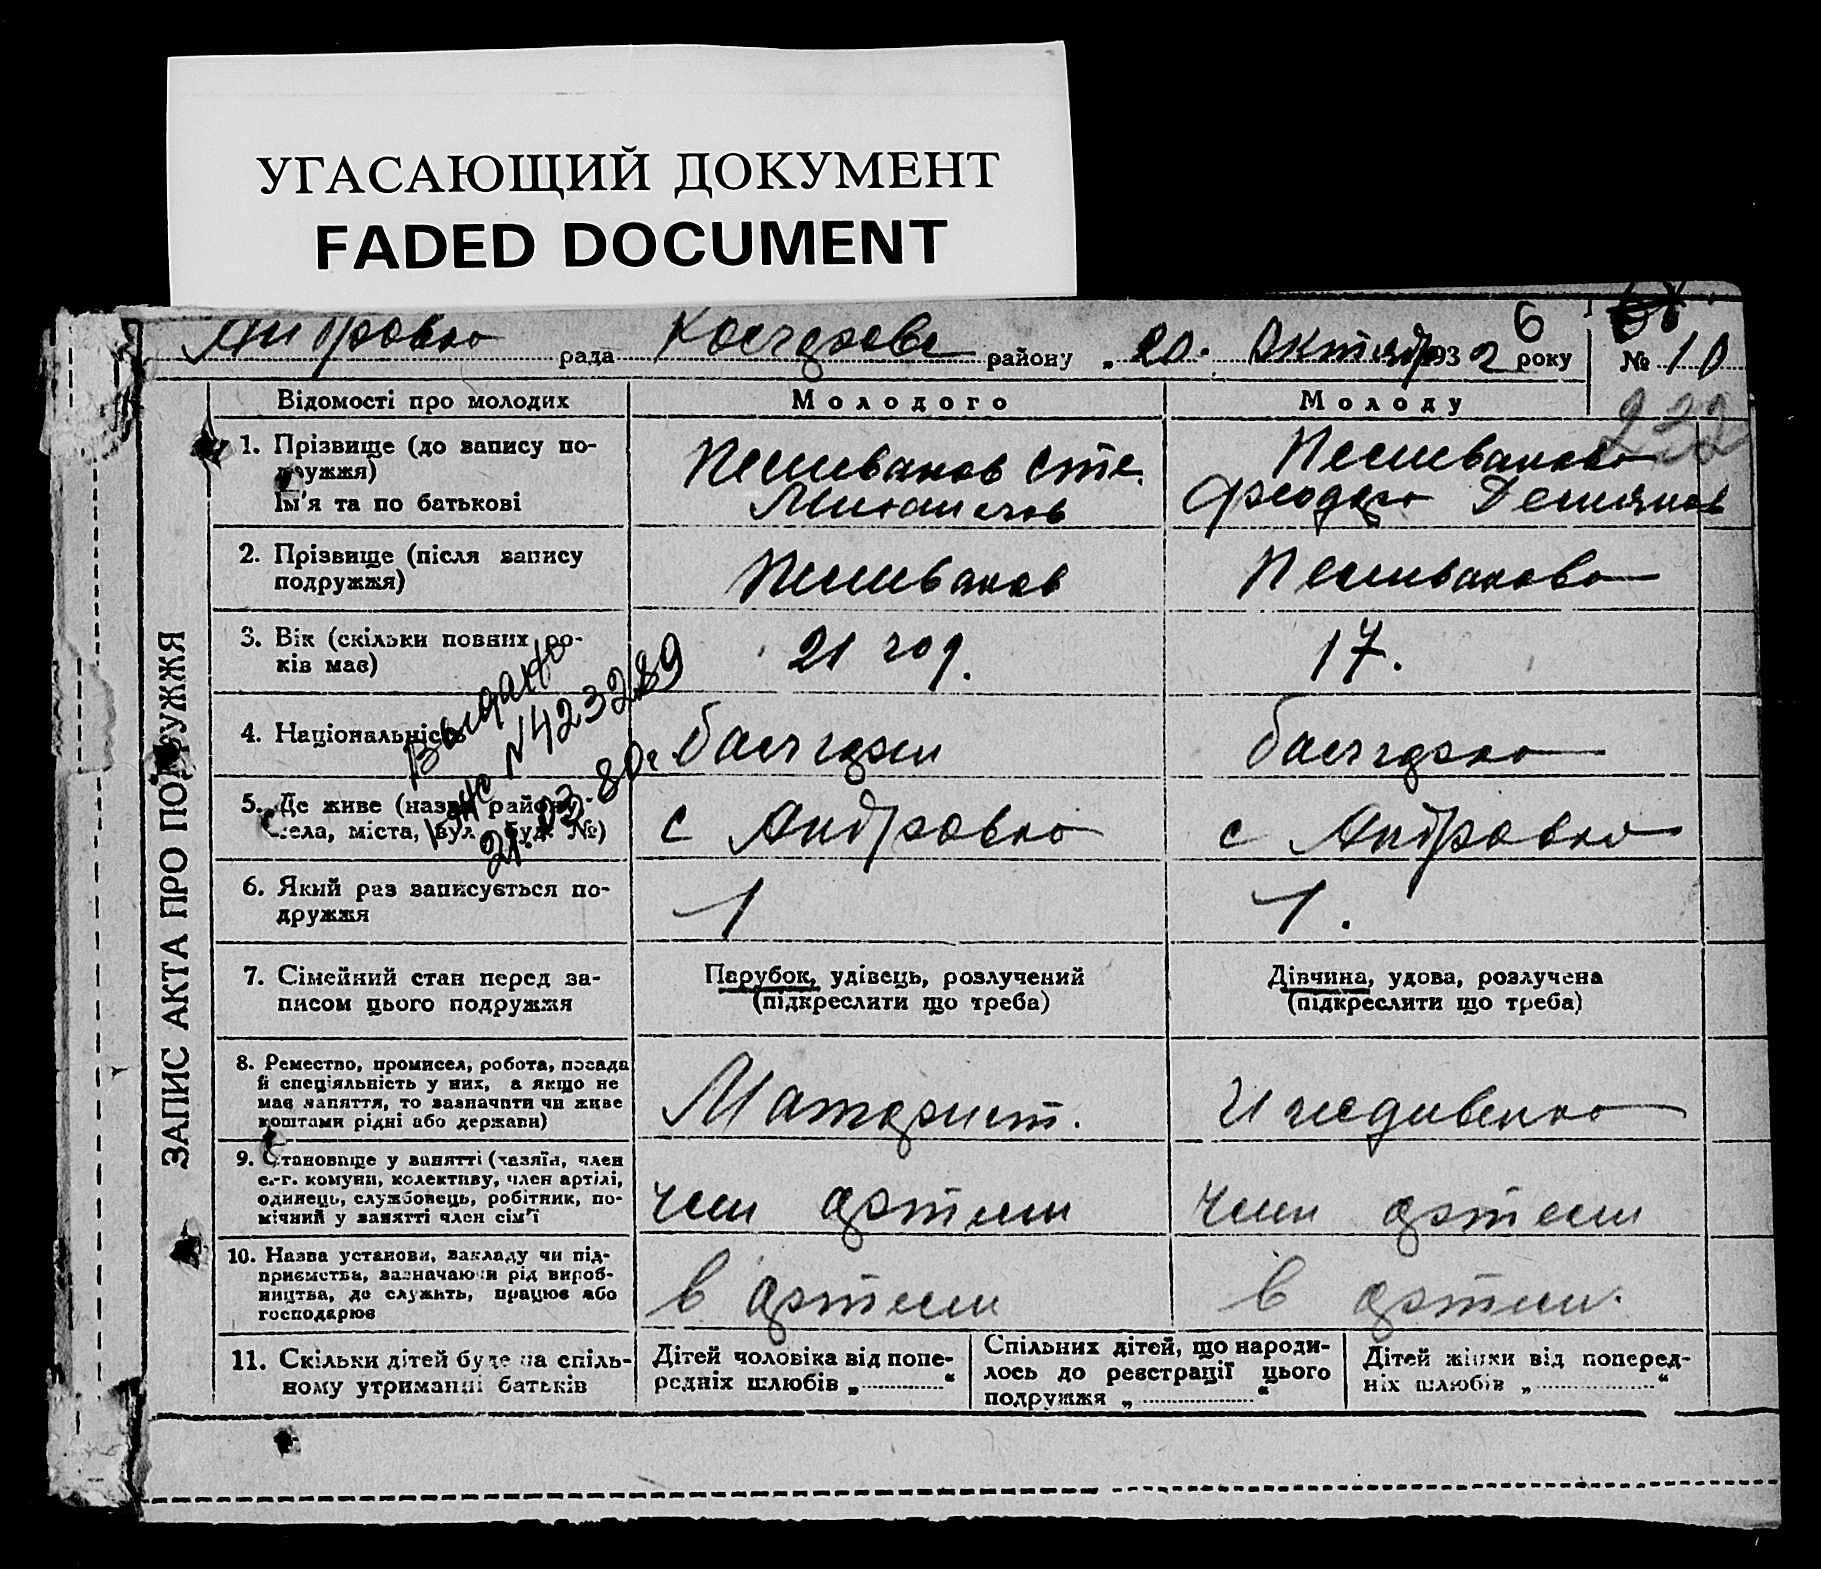 УГАСАЮЩИЙ ДОКУМЕНТ
FADED DOCUMENT
Андровка рада району „20. Октяб 1932 року № 10
6
232
ЗАПИС АКТА ПРО ПОДРУЖЖЯ
Відомості про молодих Молодого Молоду
1. Прізвище (до запису по-
дружжя)
Ім'я та по батькові
Пешиванов Сте.
Пешиванова
2. Прізвище (після запису
подружжя)
Пешиванов
Пешиванова
3. Вік (скільки повних ро-
ків має)
21 год.
17.
4. Національність
болгари
болгарка
5. Де живе (назва району,
села, міста, вул., буд. №)
с Андровка
с Андровка
Выдано
N423289
21.03.80г
6. Який раз записується по-
дружжя
1
1.
7. Сімейний стан перед за-
писом цього подружжя
Парубок, удівець, розлучений
(підкреслити що треба)
Дівчина, удова, розлучена
(підкреслити що треба)
8. Ремество, промисел, робота, посада
й спеціяльність у них, а якщо не
має заняття, то зазначити чи живе
коштами рідні або держави)
Маторист.
Иждивенка
9. Становище у занятті (хазяїн, член
с.-г. комуни, колективу, член артілі,
одинець, службовець, робітник, по-
мічний у занятті член сім'ї
член артели
член артели
10. Назва установи, закладу чи під-
приємства, зазначаючи рід вироб-
ництва, де служить, працює або
господарює
в артели
в артели.
11. Скільки дітей буде на спіль-
ному утриманні батьків
Дітей чоловіка від попе-
редніх шлюбів „ “
Спільних дітей, що народи-
лось до реєстрації цього
подружжя „ “
Дітей жінки від поперед-
ніх шлюбів „ “